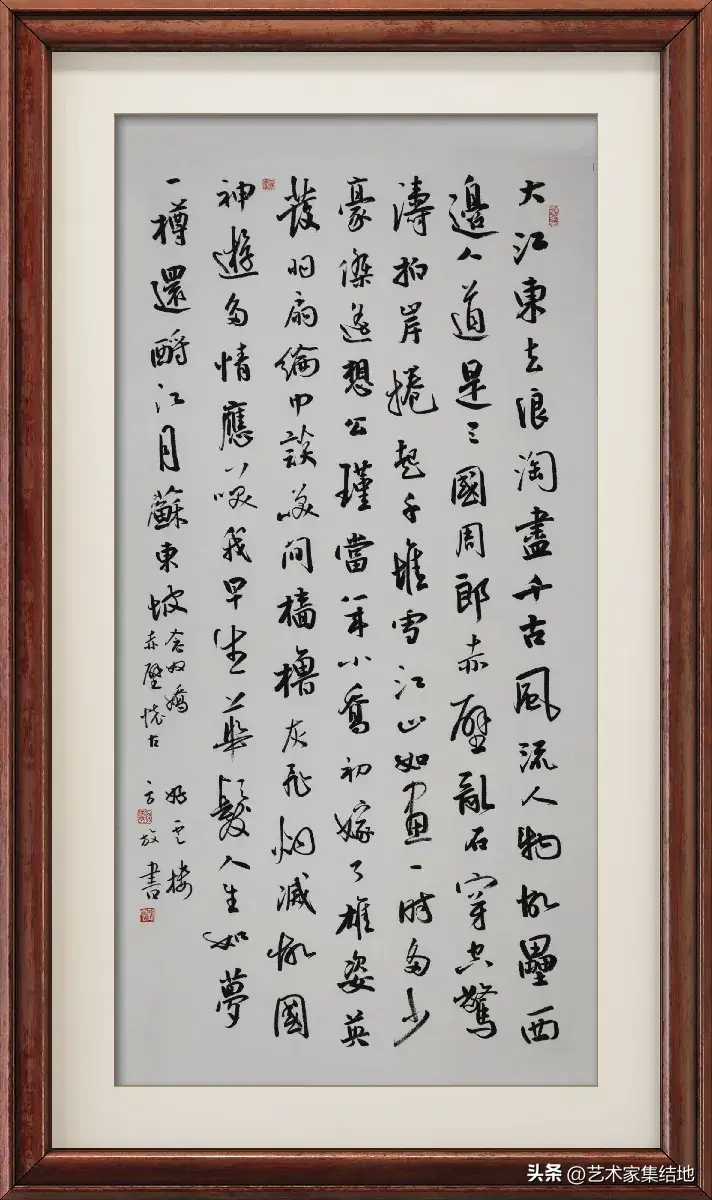 大江東去浪淘盡千古風流人物故壘西
邊人道是三國周郎赤壁亂石穿空驚
濤拍岸捲起千堆雪江山如畫一時多少
豪傑遙想公瑾當年小喬初嫁了雄姿英
發羽扇綸巾談笑間檣櫓灰飛烟滅故國
神遊多情應咲我早生華髮人生如夢
一樽還酹江月蘇東坡
念奴嬌
赤壁懷古
雲樓
方放書
头条 @艺术家集结地